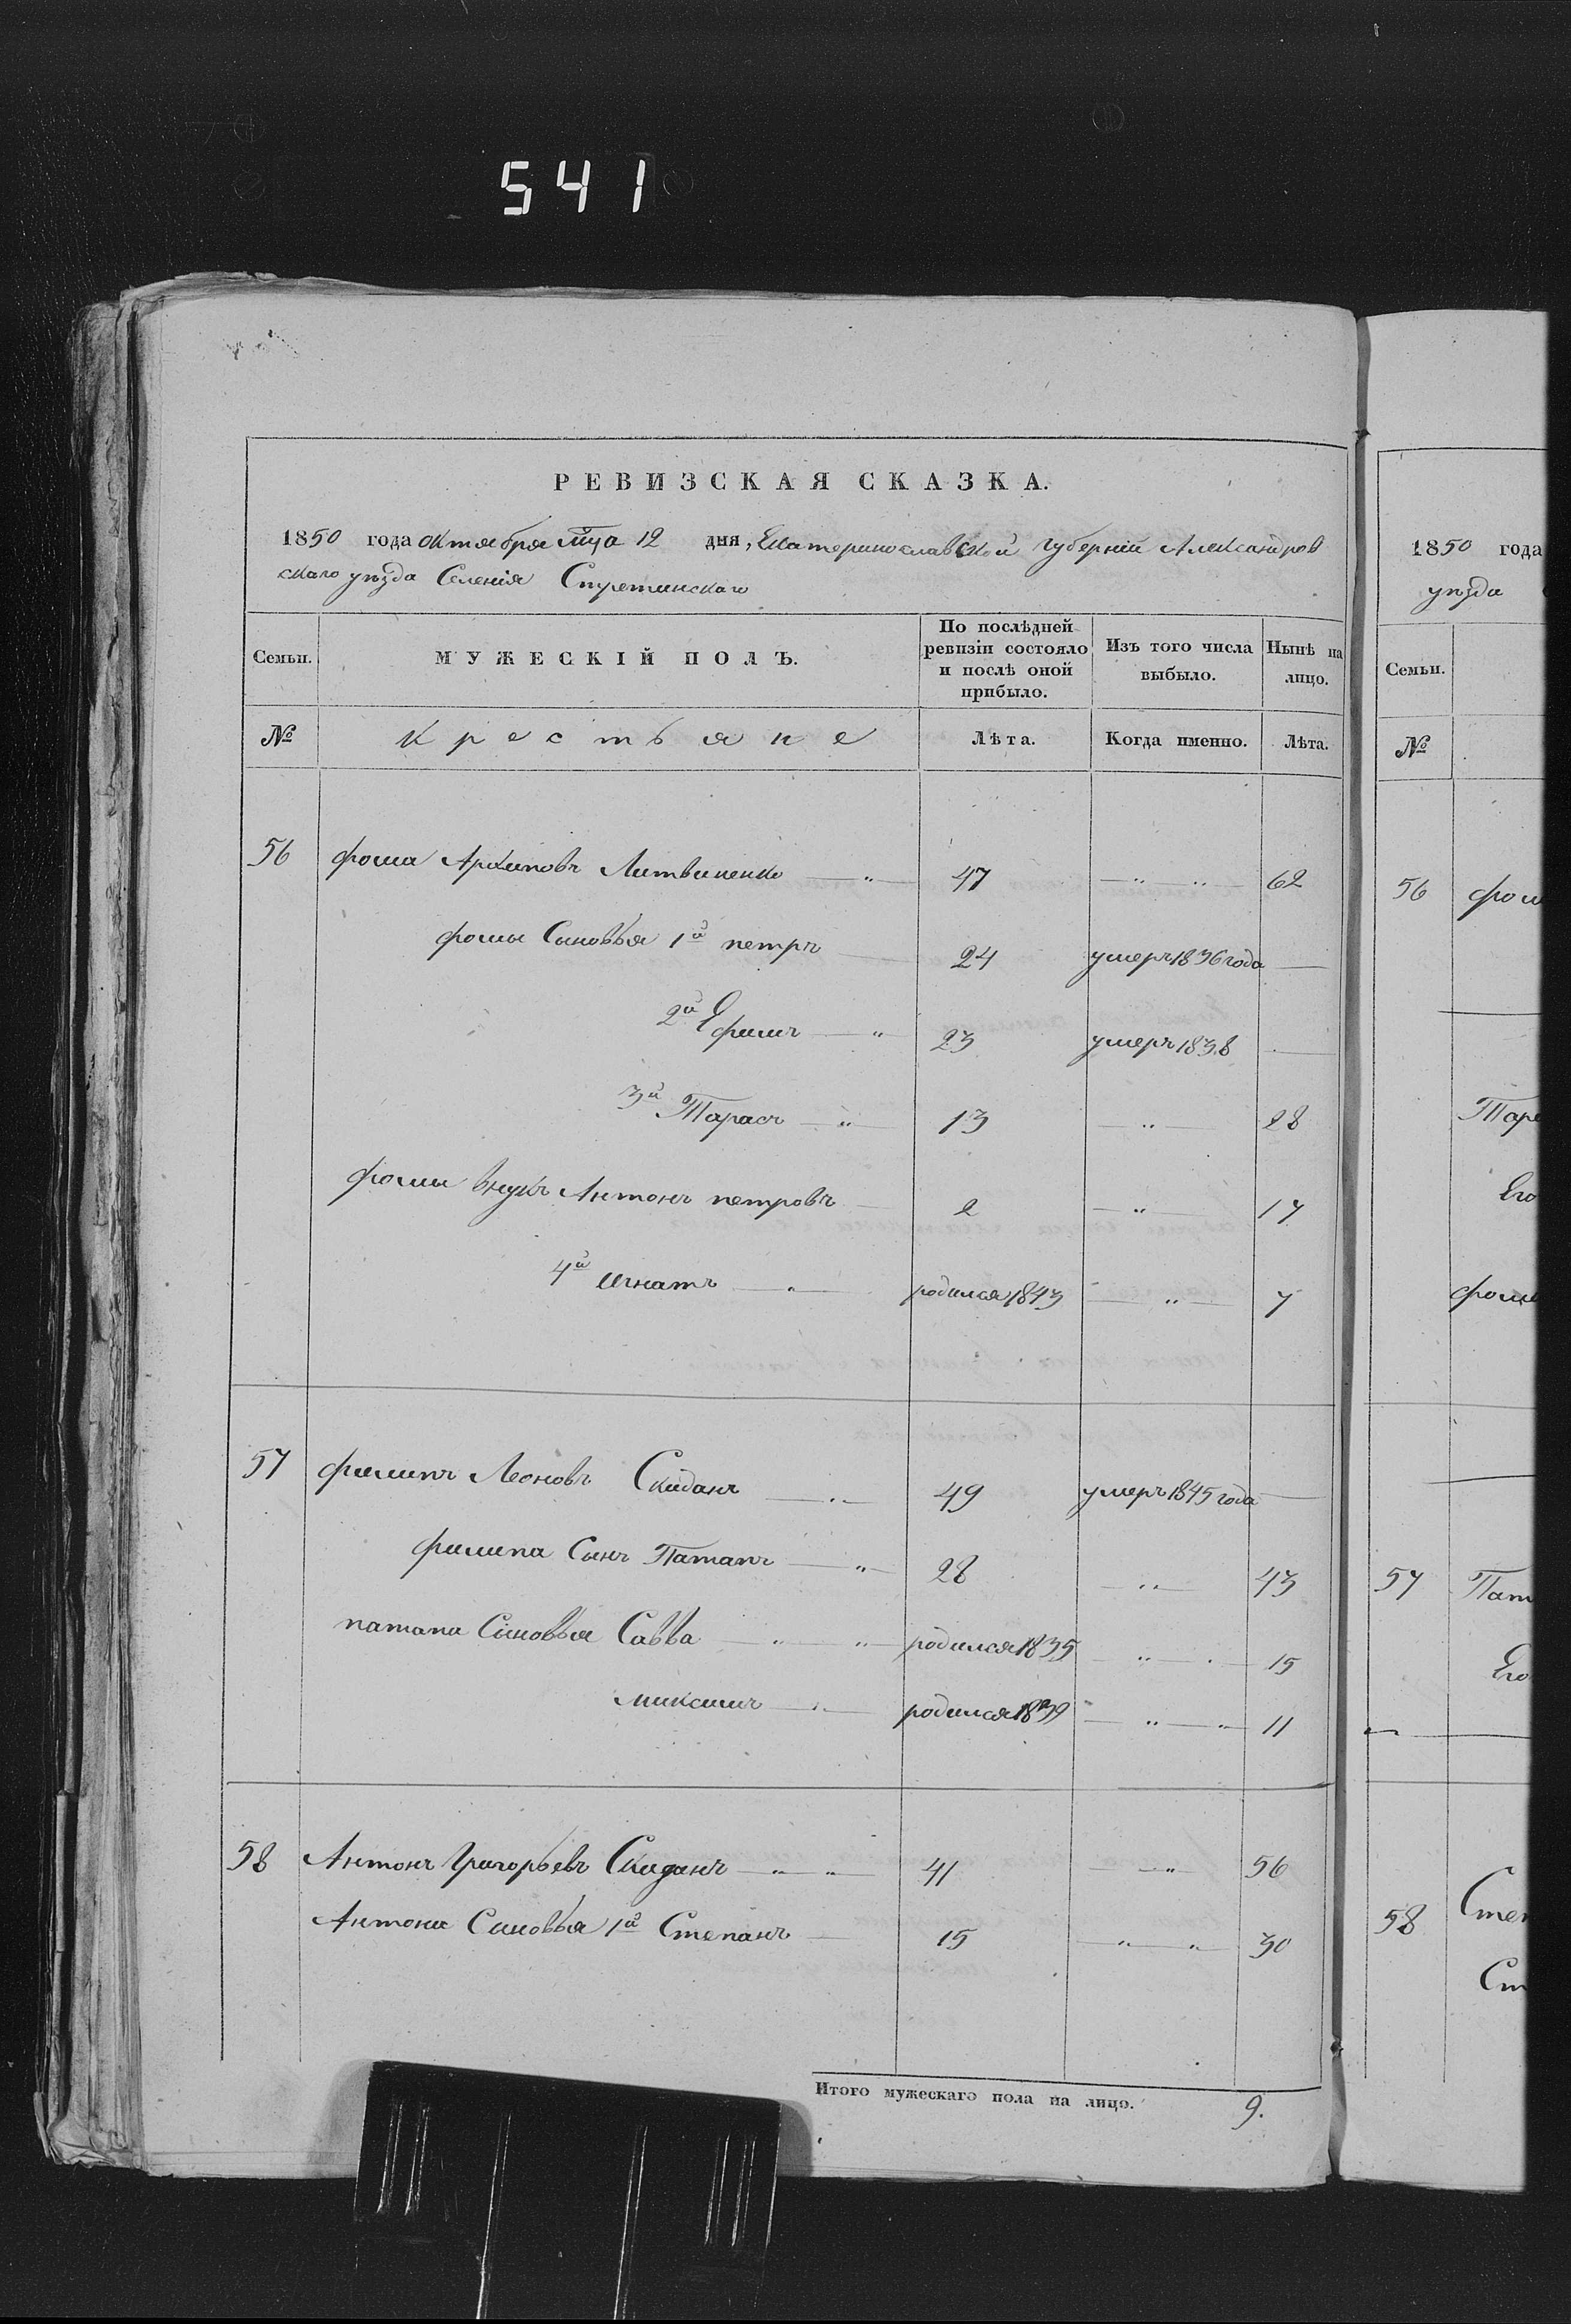 541
РЕВИЗСКАЯ СКАЗКА.
1850 года октября мца 12 дня, Екатеринославской губернiи Александров
скаго уѣзда Селенiя Стретинскаго
Семьи. МУЖЕСКIЙ ПОЛЪ. По послѣдней ревизiи состояло и послѣ оной прибыло. Изъ того числа выбыло. Нынѣ на лицо.
№ Крестьяне Лѣта. Когда именно. Лѣта.
56 фома Архиповъ Литвиненко — „ — 47 — „ „ — 62
фомы Сыновья 1й петръ — 24 умеръ 1836 года —
2й Ефимъ — „ 23 умеръ 1838 —
3й Тарасъ — „ — 13 — „ — 28
фомы внукъ Антонъ петровъ — 2 — „ — 17
4й игнатъ — „ — родился 1843 — „ — 7
57 филипъ Леоновъ Скиданъ — „ — 49 умеръ 1845 года —
филипа Сынъ Патапъ — „ — 28 — „ — 43
патапа Сыновья Савва — „ — „ — родился 1835 — „ — 15
максимъ — „ — родился 1839 — „ — „ 11
58 Антонъ Григорьевъ Скиданъ — „ — „ — 41 — „ 56
Антона Сыновья 1й Степанъ — 15 — „ — „ — 30
Итого мужескаго пола на лицо. 9.
1850 года
уѣзда
Семьи.
№
56 фом
Тара
Его
фомы
57 Пат
Его
58 Степ
Ст